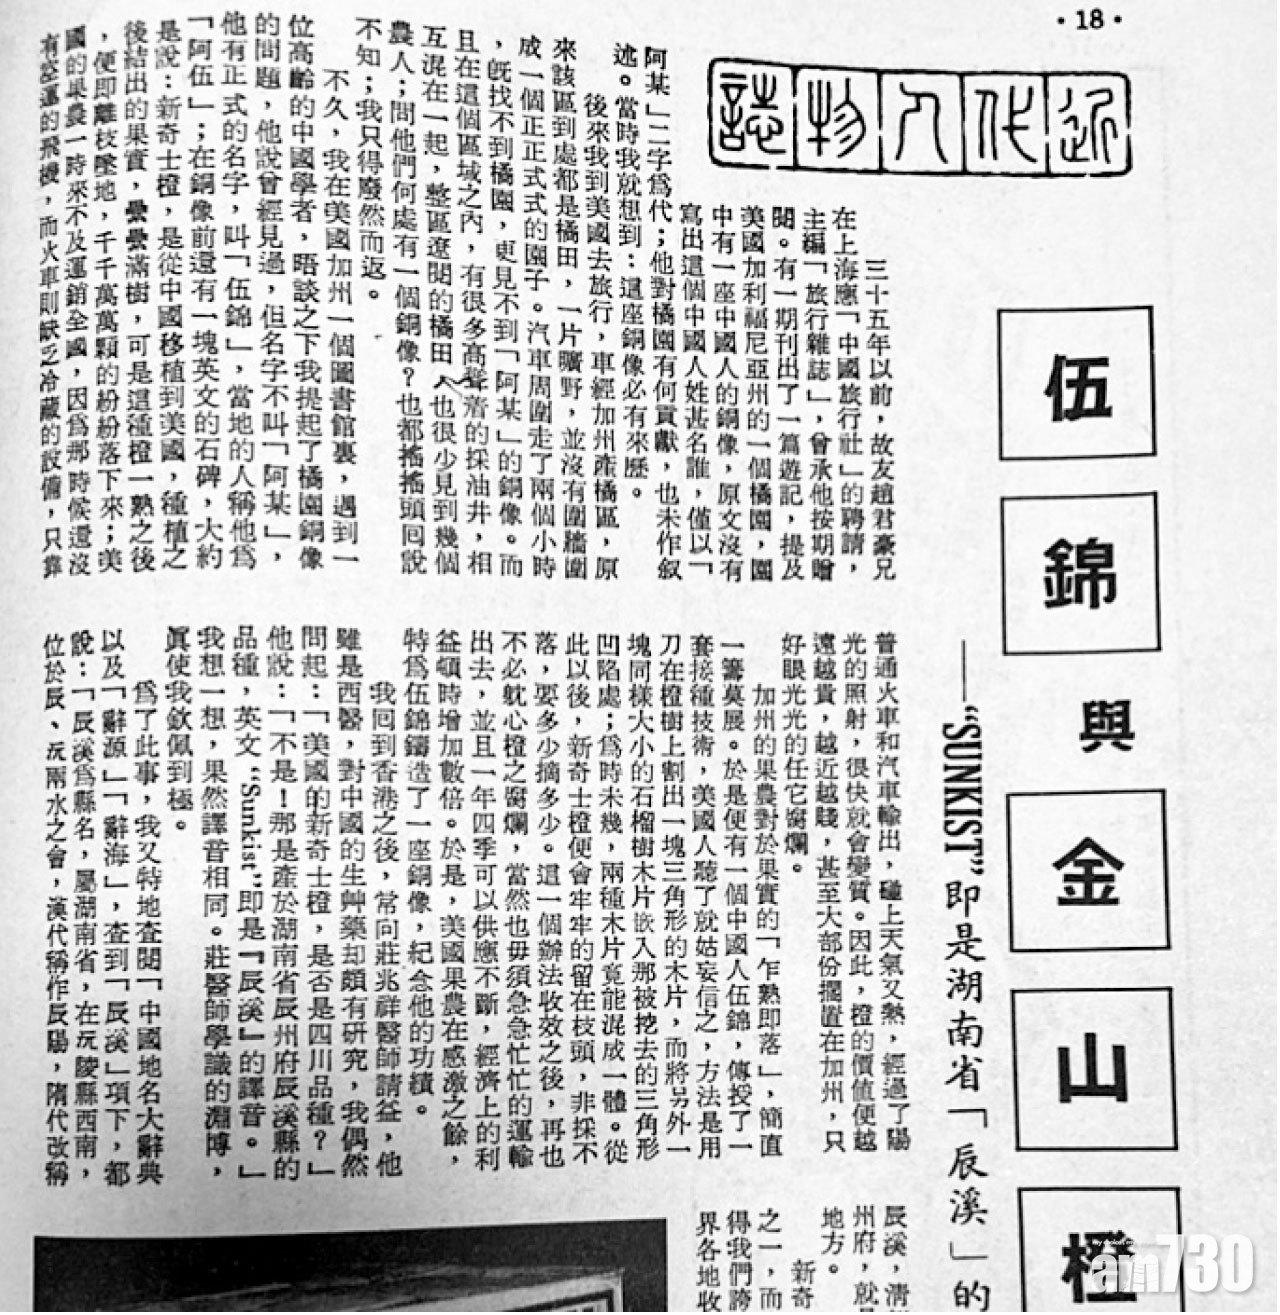 ·18·
近代人物誌
伍錦與金山橙
——“SUNKIST”即是湖南省「辰溪」的
三十五年以前，故友趙君豪兄
在上海應「中國旅行社」的聘請，
主編「旅行雜誌」，曾承他按期贈
閱。有一期刊出了一篇遊記，提及
美國加利福尼亞州的一個橘園，園
中有一座中國人的銅像，原文沒有
寫出這個中國人姓甚名誰，僅以「
阿某」二字爲代；他對橘園有何貢獻，也未作叙
述。當時我就想到：這座銅像必有來歷。
後來我到美國去旅行，車經加州產橘區，原
來該區到處都是橘田，一片曠野，並沒有圍牆圍
成一個正正式式的園子。汽車周圍走了兩個小時
，旣找不到橘園，更見不到「阿某」的銅像。而
且在這個區域之內，有很多高聳着的採油井，相
互混在一起，整區遼闊的橘田，也很少見到幾個
農人；問他們何處有一個銅像？也都搖搖頭囘說
不知；我只得廢然而返。
不久，我在美國加州一個圖書館裏，遇到一
位高齡的中國學者，晤談之下我提起了橘園銅像
的問題，他說曾經見過，但名字不叫「阿某」，
他有正式的名字，叫「伍錦」，當地的人稱他爲
「阿伍」；在銅像前還有一塊英文的石碑，大約
是說：新奇士橙，是從中國移植到美國，種植之
後結出的果實，纍纍滿樹，可是這種橙一熟之後
，便卽離枝墜地，千千萬萬顆的紛紛落下來；美
國的果農一時來不及運銷全國，因爲那時候還沒
有空運的飛機，而火車則缺乏冷藏的設備，只靠
普通火車和汽車輸出，碰上天氣又熱，經過了陽
光的照射，很快就會變質。因此，橙的價値便越
遠越貴，越近越賤，甚至大部份擱置在加州，只
好眼光光的任它腐爛。
加州的果農對於果實的「乍熟即落」，簡直
一籌莫展。於是便有一個中國人伍錦，傳授了一
套接種技術，美國人聽了就姑妄信之，方法是用
刀在橙樹上割出一塊三角形的木片，而將另外一
塊同樣大小的石榴樹木片嵌入那被挖去的三角形
凹陷處；爲時未幾，兩種木片竟能混成一體。從
此以後，新奇士橙便會牢牢的留在枝頭，非採不
落，要多少摘多少。這一個辦法收效之後，再也
不必躭心橙之腐爛，當然也毋須急急忙忙的運輸
出去，並且一年四季可以供應不斷，經濟上的利
益頓時增加數倍。於是，美國果農在感激之餘，
特爲伍錦鑄造了一座銅像，紀念他的功績。
我囘到香港之後，常向莊兆祥醫師請益，他
雖是西醫，對中國的生艸藥却頗有研究，我偶然
問起：「美國的新奇士橙，是否是四川品種？」
他說：「不是！那是產於湖南省辰州府辰溪縣的
品種，英文“Sunkist”即是『辰溪』的譯音。」
我想一想，果然譯音相同。莊醫師學識的淵博，
眞使我欽佩到極。
爲了此事，我又特地查閱「中國地名大辭典
以及「辭源」「辭海」，查到「辰溪」項下，都
說：「辰溪爲縣名，屬湖南省，在沅陵縣西南，
位於辰、沅兩水之會，漢代稱作辰陽，隋代改稱
辰溪，清
州府，就
地方。
新奇
之一，而
得我們誇
界各地收
am730